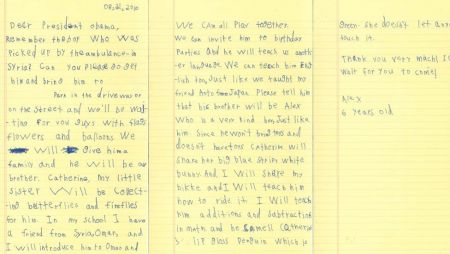 Dear President Obama,
Remember the boy who was
picked up by the ambulance in
Syria? Can you please go get
him and bring him to
Park in the driveway or
on the street and we'll be wait-
ting for you guys with flags
flowers and balloons. We
will give him a
family and he will be our
brother. Catherine, my little
sister will be collect-
ing butterflies and fireflies
for him. In my school I have
a friend from Syria, Omar, and
I will introduce him to Omar and
We can all play together.
We can invite him to birthday
parties and he will teach us anoth-
er language. We can teach him Eng-
lish too, just like we taught my
friend Aoto from Japan. Please tell him
that his brother will be Alex
who is a very kind boy, just like
him. Since he won't bring toys and
doesn't have toys Catherine will
share her big blue stripy white
bunny. And I will share my
bike and I will teach him
how to ride it. I will teach
him additions and subtractions
in math and he smell Catherine
's lip gloss penguin which is
green. She doesn't let any
touch it.
Thank you very much! I
wait for you to come!
Alex
6 years old